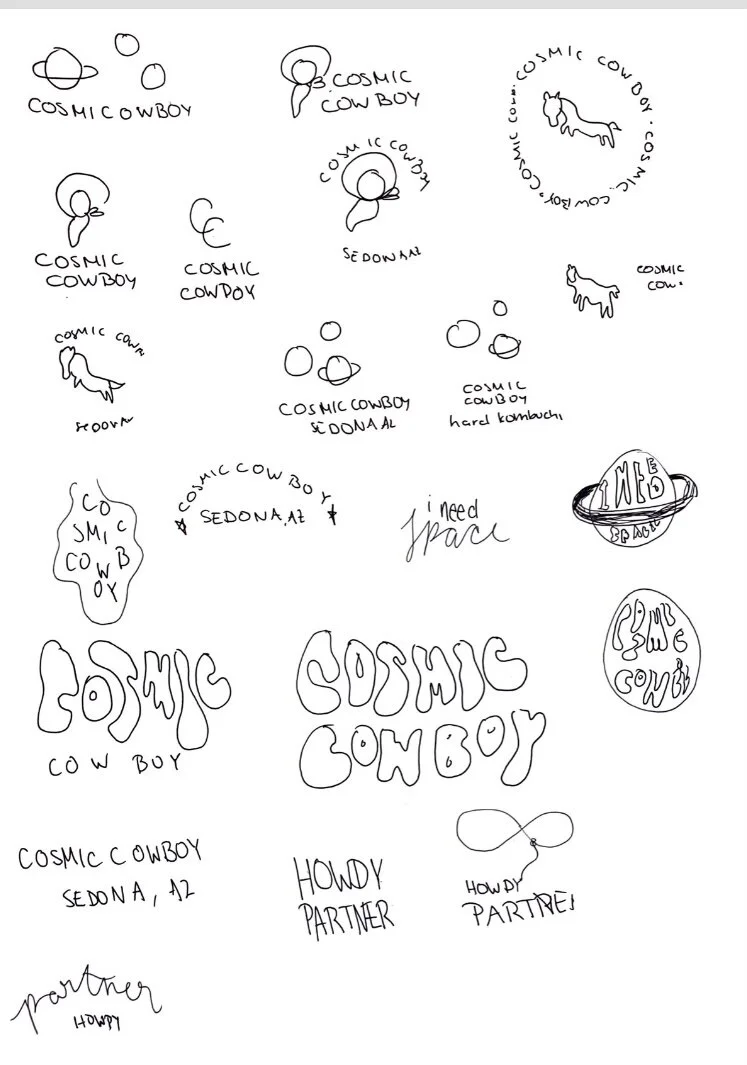 COSMIC COWBOY
COSMIC
COW BOY
COSMIC COW BOY · COSMIC COWBOY · COSMIC COW
COSMIC COWBOY
SEDONA AZ
COSMIC
COWBOY
CC
COSMIC
COWPOY
COSMIC
COW
COSMIC COW
SEDONA
COSMIC COWBOY
SEDONA AZ
COSMIC
COWBOY
hard kombucha
CO
SMIC
COWB
OY
COSMIC COW BOY
SEDONA, AZ
i need
space
I NEED
SPACE
COSMIC
COW BOY
COSMIC
COWBOY
COSMIC
COWB
COSMIC COWBOY
SEDONA, AZ
HOWDY
PARTNER
HOWDY
PARTNE
partner
HOWDY